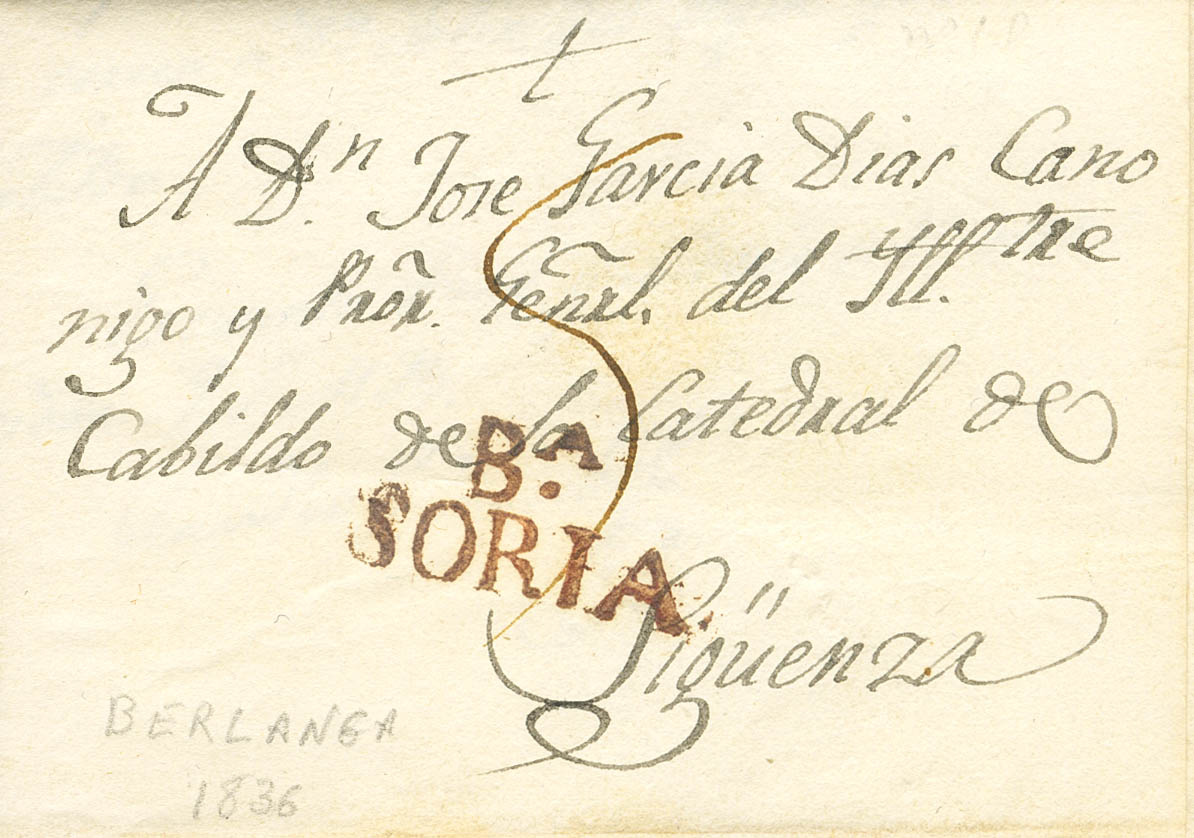 A Dn. Jose Garcia Dias Cano
nigo y Pror̃. Gen̄rl. del Yll.tre
Cabildo de la Catedral de
B.A
SORIA.
Sigüenza
BERLANGA
1836